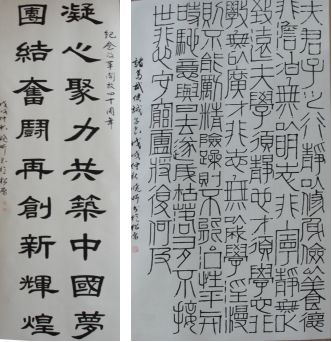 紀念改革開放四十周年
凝心聚力共築中國夢
團結奮鬥再創新輝煌
戊戌仲秋
夫君子之行靜以修身儉以養德
非澹泊無以明志非寧靜無以
致遠夫學須靜也才須學也非
學無以廣才非志無以成學淫慢
則不能勵精險躁則不能治性年與
時馳意與日去遂成枯落多不接
世悲守窮廬將復何及
諸葛武侯誡子書戊戌仲秋